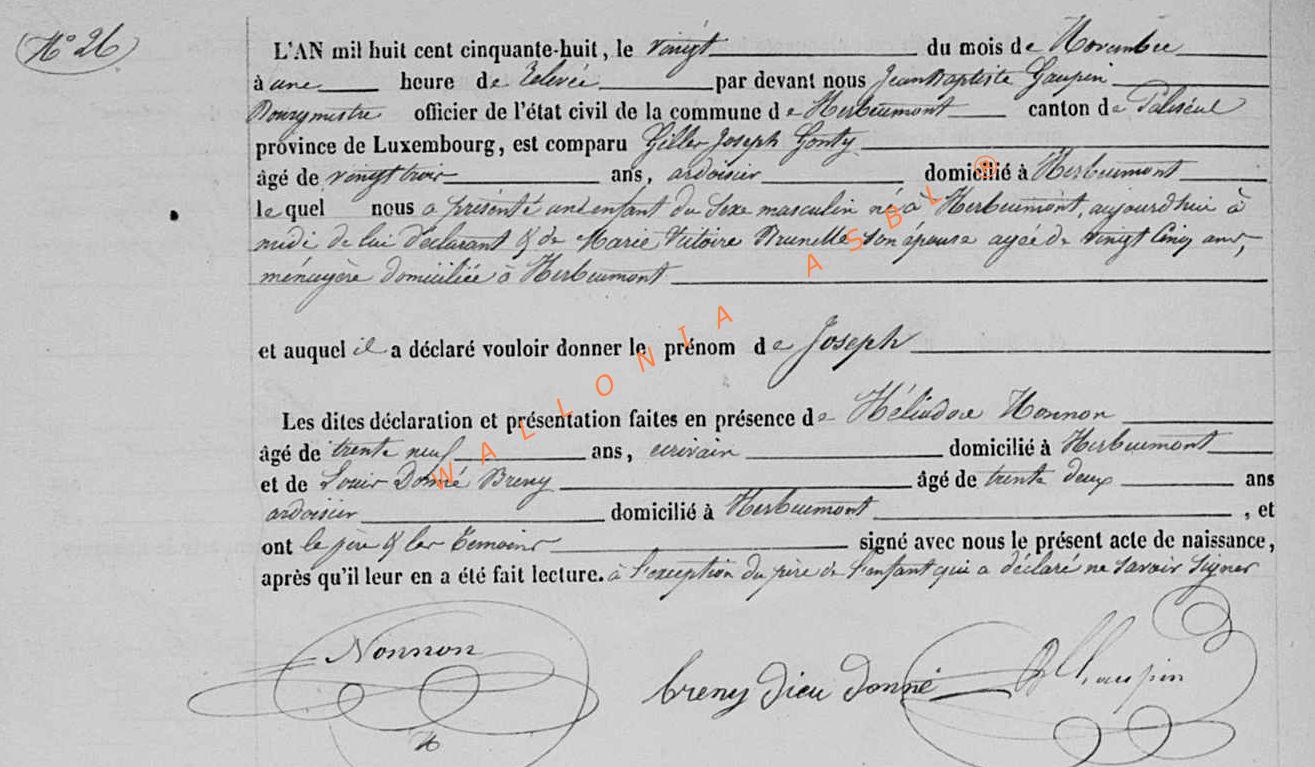 N° 26
L'AN mil huit cent cinquante-huit, le vingt du mois de Novembre
à une heure de relevée par devant nous Jean Baptiste Gaupin
Bourgmestre officier de l'état civil de la commune de Herbeumont canton de Paliseul
province de Luxembourg, est comparu Gilles Joseph Gonty
âgé de vingt trois ans, ardoisier domicilié à Herbeumont
lequel nous a présenté un enfant du sexe masculin né à Herbeumont, aujourd'hui à
midi de lui déclarant & de Marie Victoire Brunelle son épouse agée de vingt cinq ans,
ménagère domiciliée à Herbeumont
et auquel il a déclaré vouloir donner le prénom de Joseph
Les dites déclaration et présentation faites en présence de Héliodore Nonnon
âgé de trente neuf ans, écrivain domicilié à Herbeumont
et de Louis Donné Breny âgé de trente deux ans
ardoisier domicilié à Herbeumont, et
ont le père & les témoins signé avec nous le présent acte de naissance,
après qu'il leur en a été fait lecture. à l'exception du père de l'enfant qui a déclaré ne savoir signer
Nonnon
breny dieu donné
Gaupin
WALLONIA ASBL ®